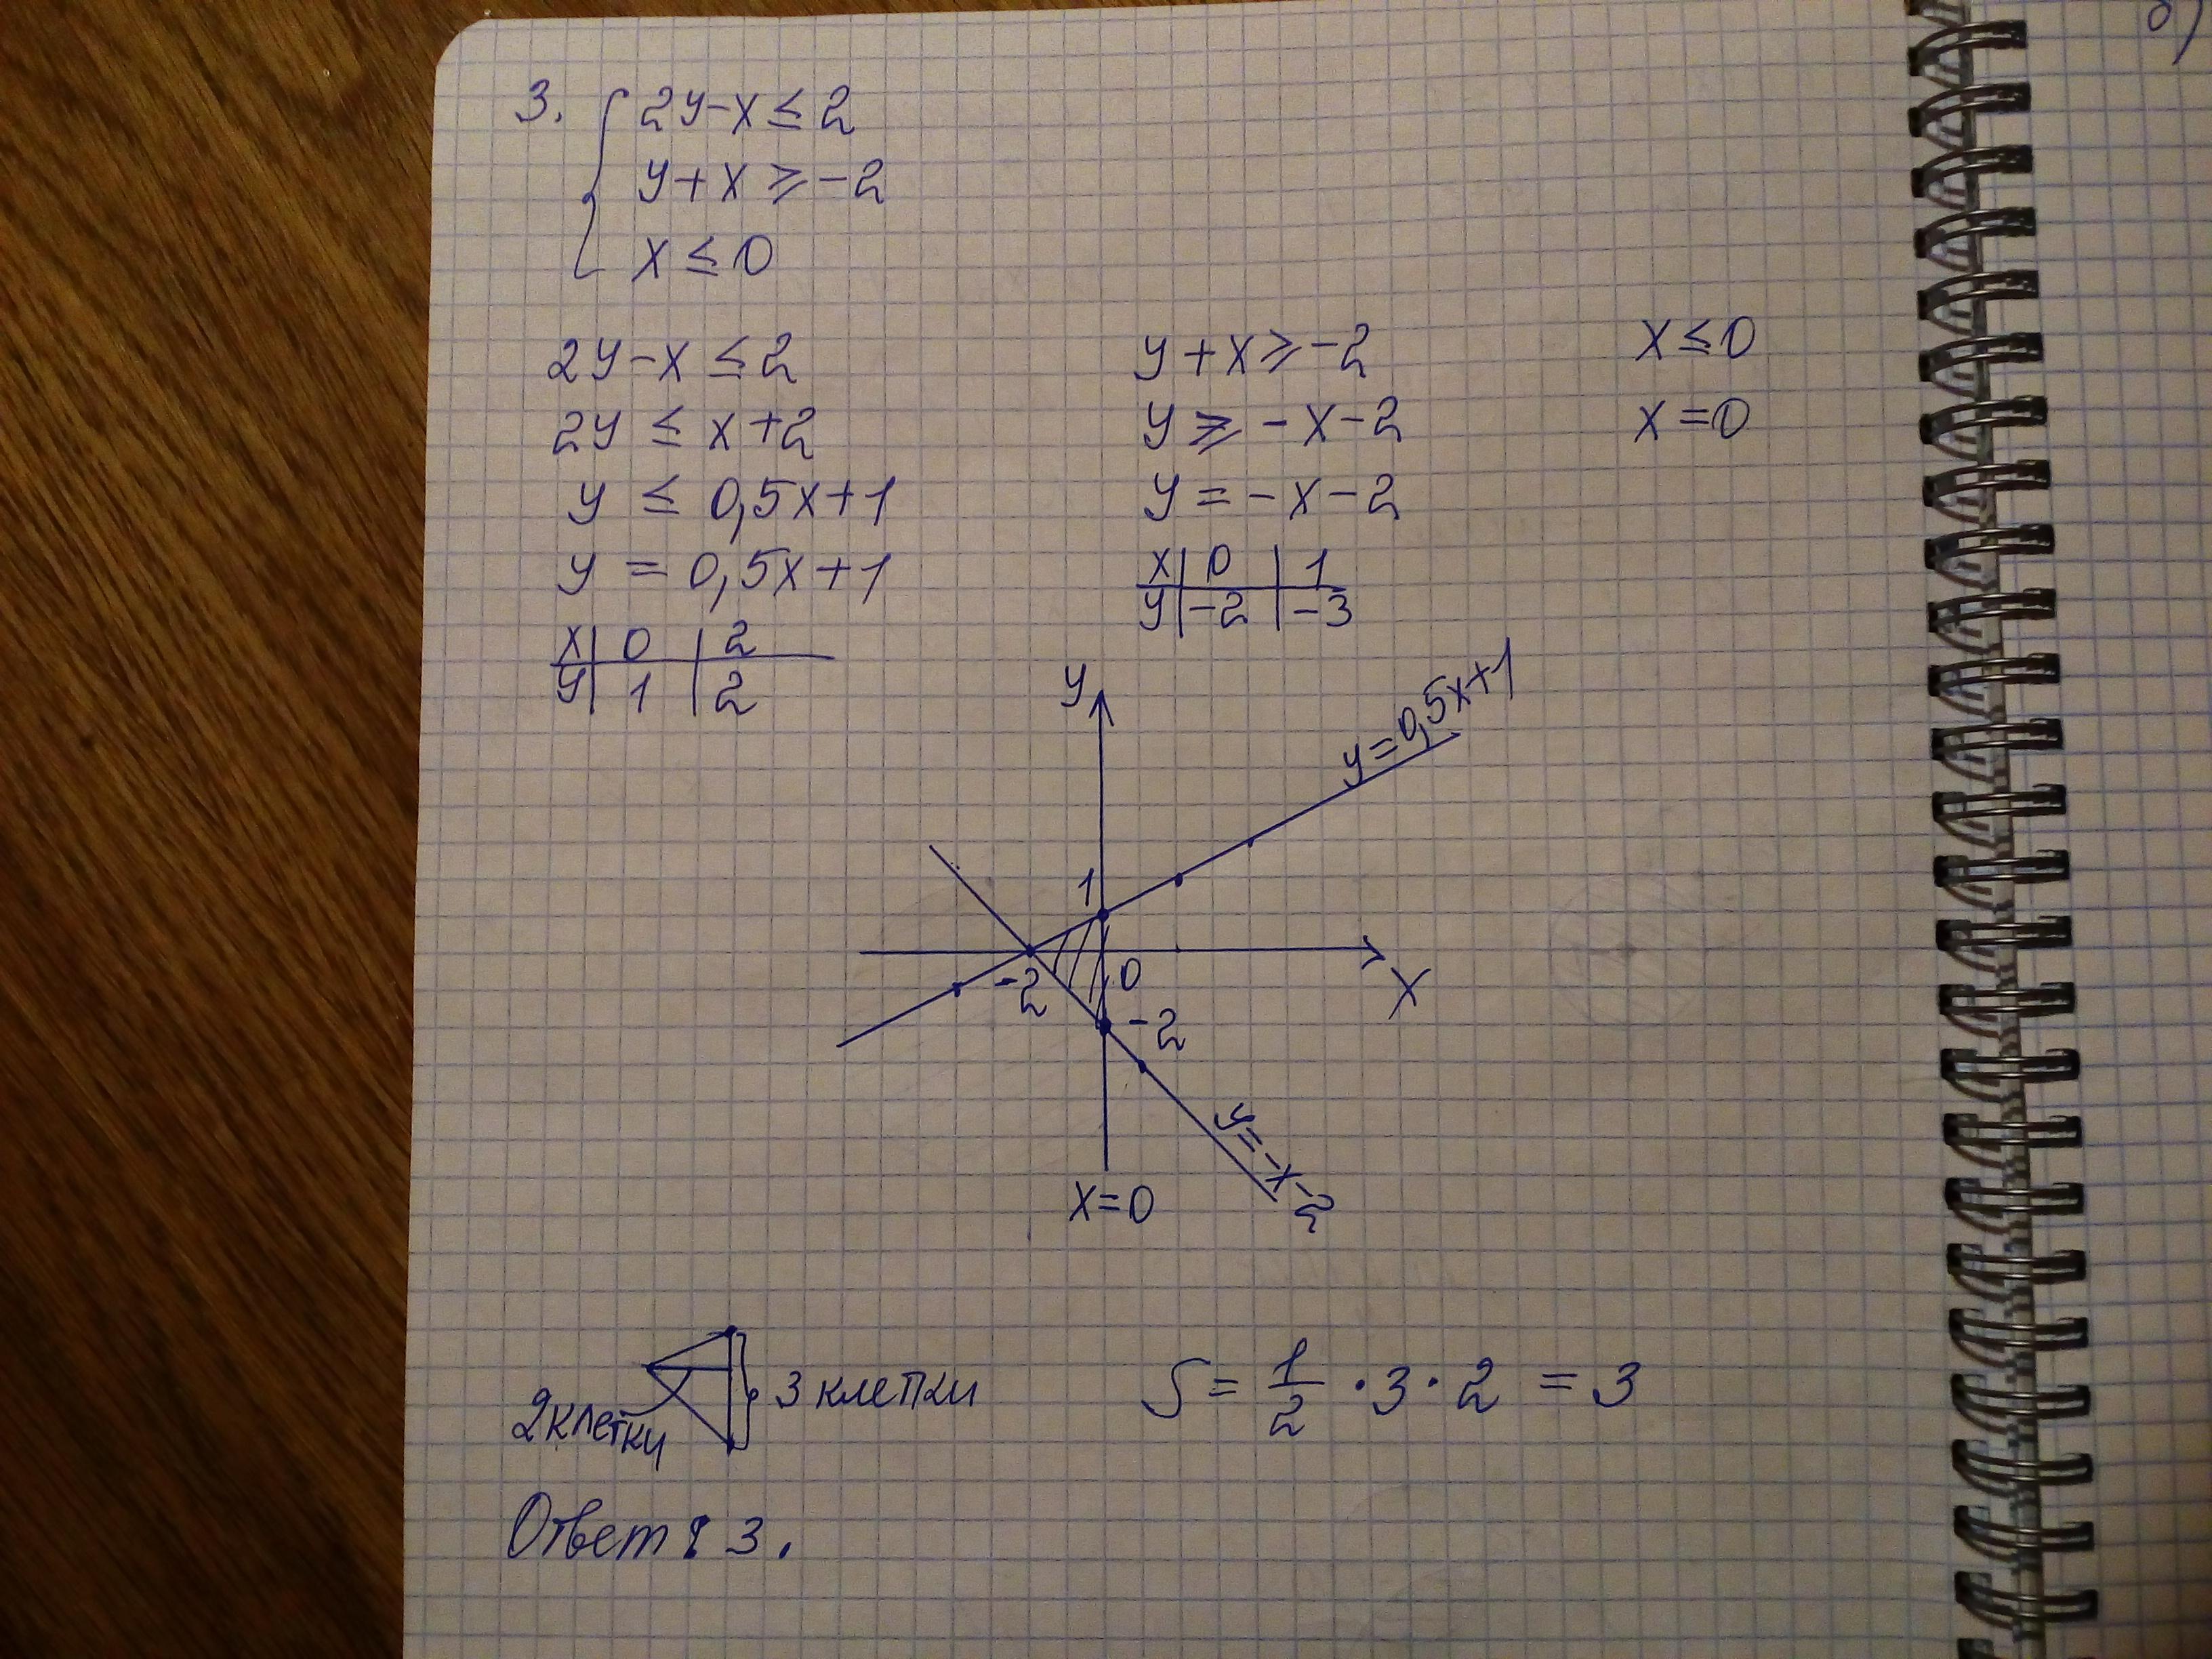 3. { 2y-x ≤ 2
y+x ≥ -2
x ≤ 0
2y-x ≤ 2
2y ≤ x+2
y ≤ 0,5x+1
y = 0,5x+1
x | 0 | 2
y | 1 | 2
y+x ≥ -2
y ≥ -x-2
y = -x-2
x | 0 | 1
y | -2 | -3
x ≤ 0
x = 0
y
y=0,5x+1
1
-2
0
x
-2
y=-x-2
x=0
3 клетки
2 клетки
S = 1/2 · 3 · 2 = 3
Ответ: 3.